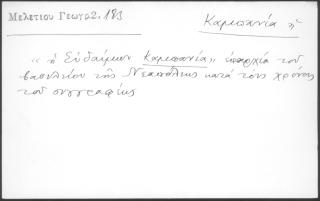 Μελετίου Γεωγρ2. 183
Καμπανία ἡ
"ἡ Εὐδαίμων Καμπανία" ἐπαρχία τοῦ
βασιλείου τῆς Νεαπόλεως κατά τούς χρόνους
τοῦ συγγραφέως